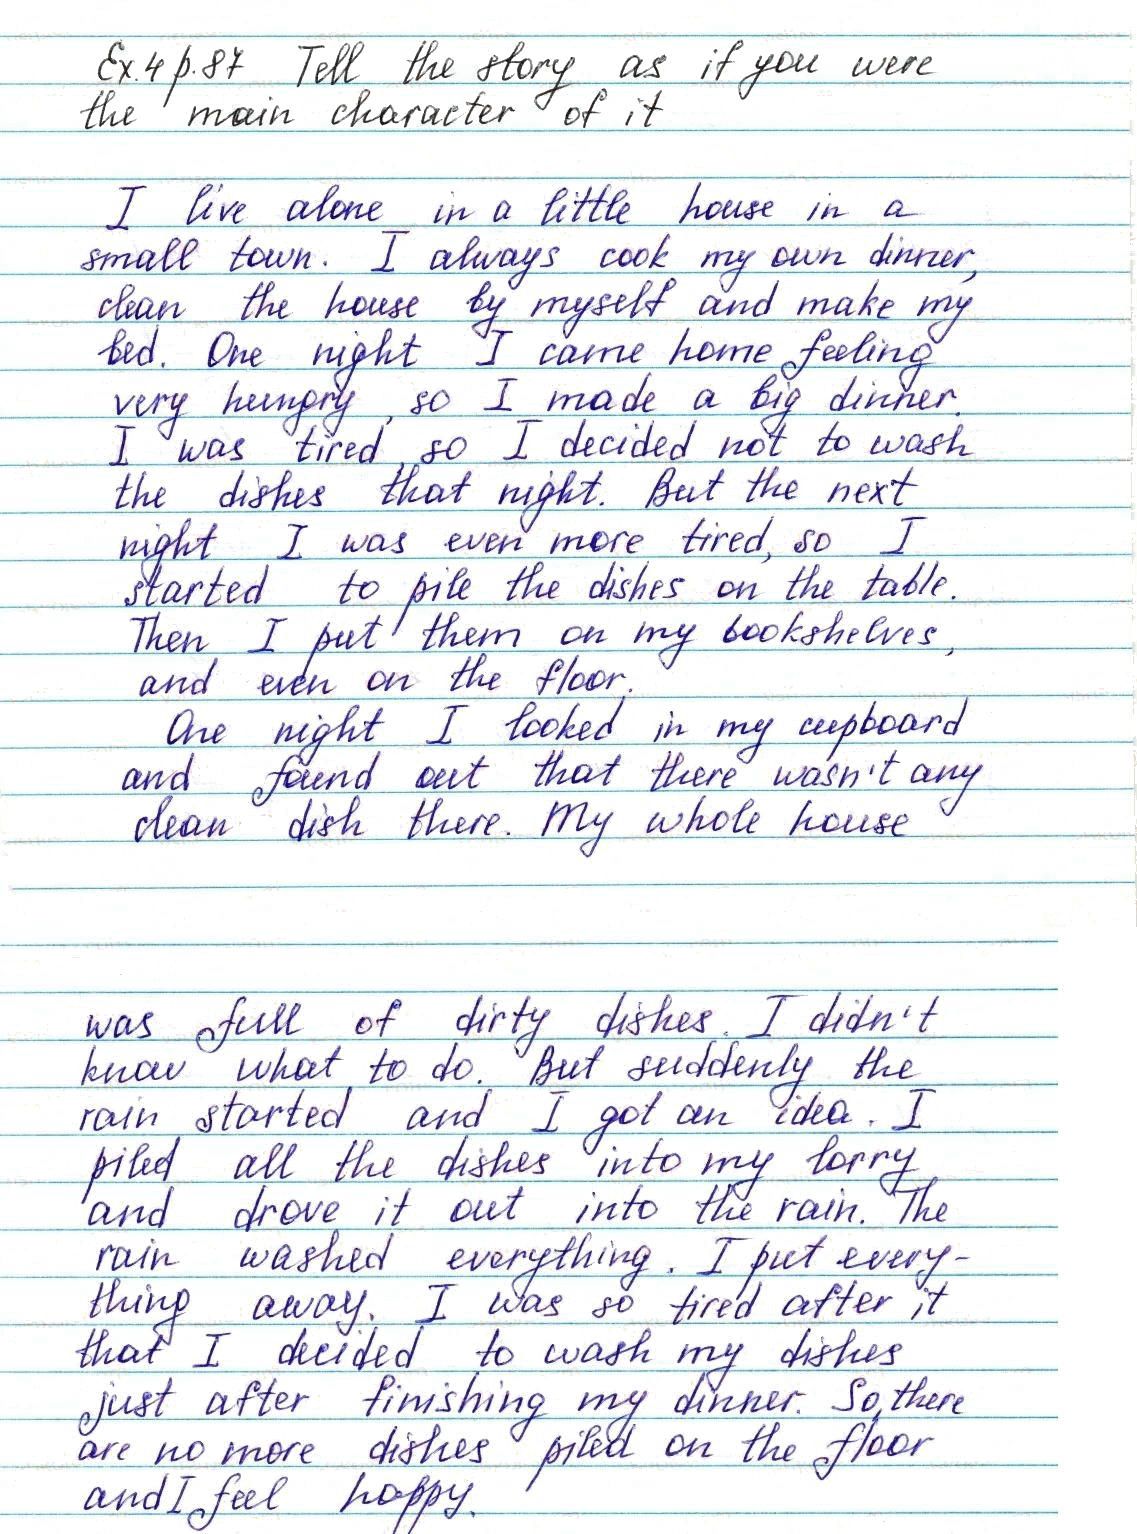 Ex.4 p.87 Tell the story as if you were
the main character of it
I live alone in a little house in a
small town. I always cook my own dinner,
clean the house by myself and make my
bed. One night I came home feeling
very hungry, so I made a big dinner.
I was tired, so I decided not to wash
the dishes that night. But the next
night I was even more tired, so I
started to pile the dishes on the table.
Then I put them on my bookshelves,
and even on the floor.
One night I looked in my cupboard
and found out that there wasn't any
clean dish there. My whole house
was full of dirty dishes. I didn't
know what to do. But suddenly the
rain started and I got an idea. I
piled all the dishes into my lorry
and drove it out into the rain. The
rain washed everything. I put every-
thing away. I was so tired after it
that I decided to wash my dishes
just after finishing my dinner. So, there
are no more dishes piled on the floor
and I feel happy.